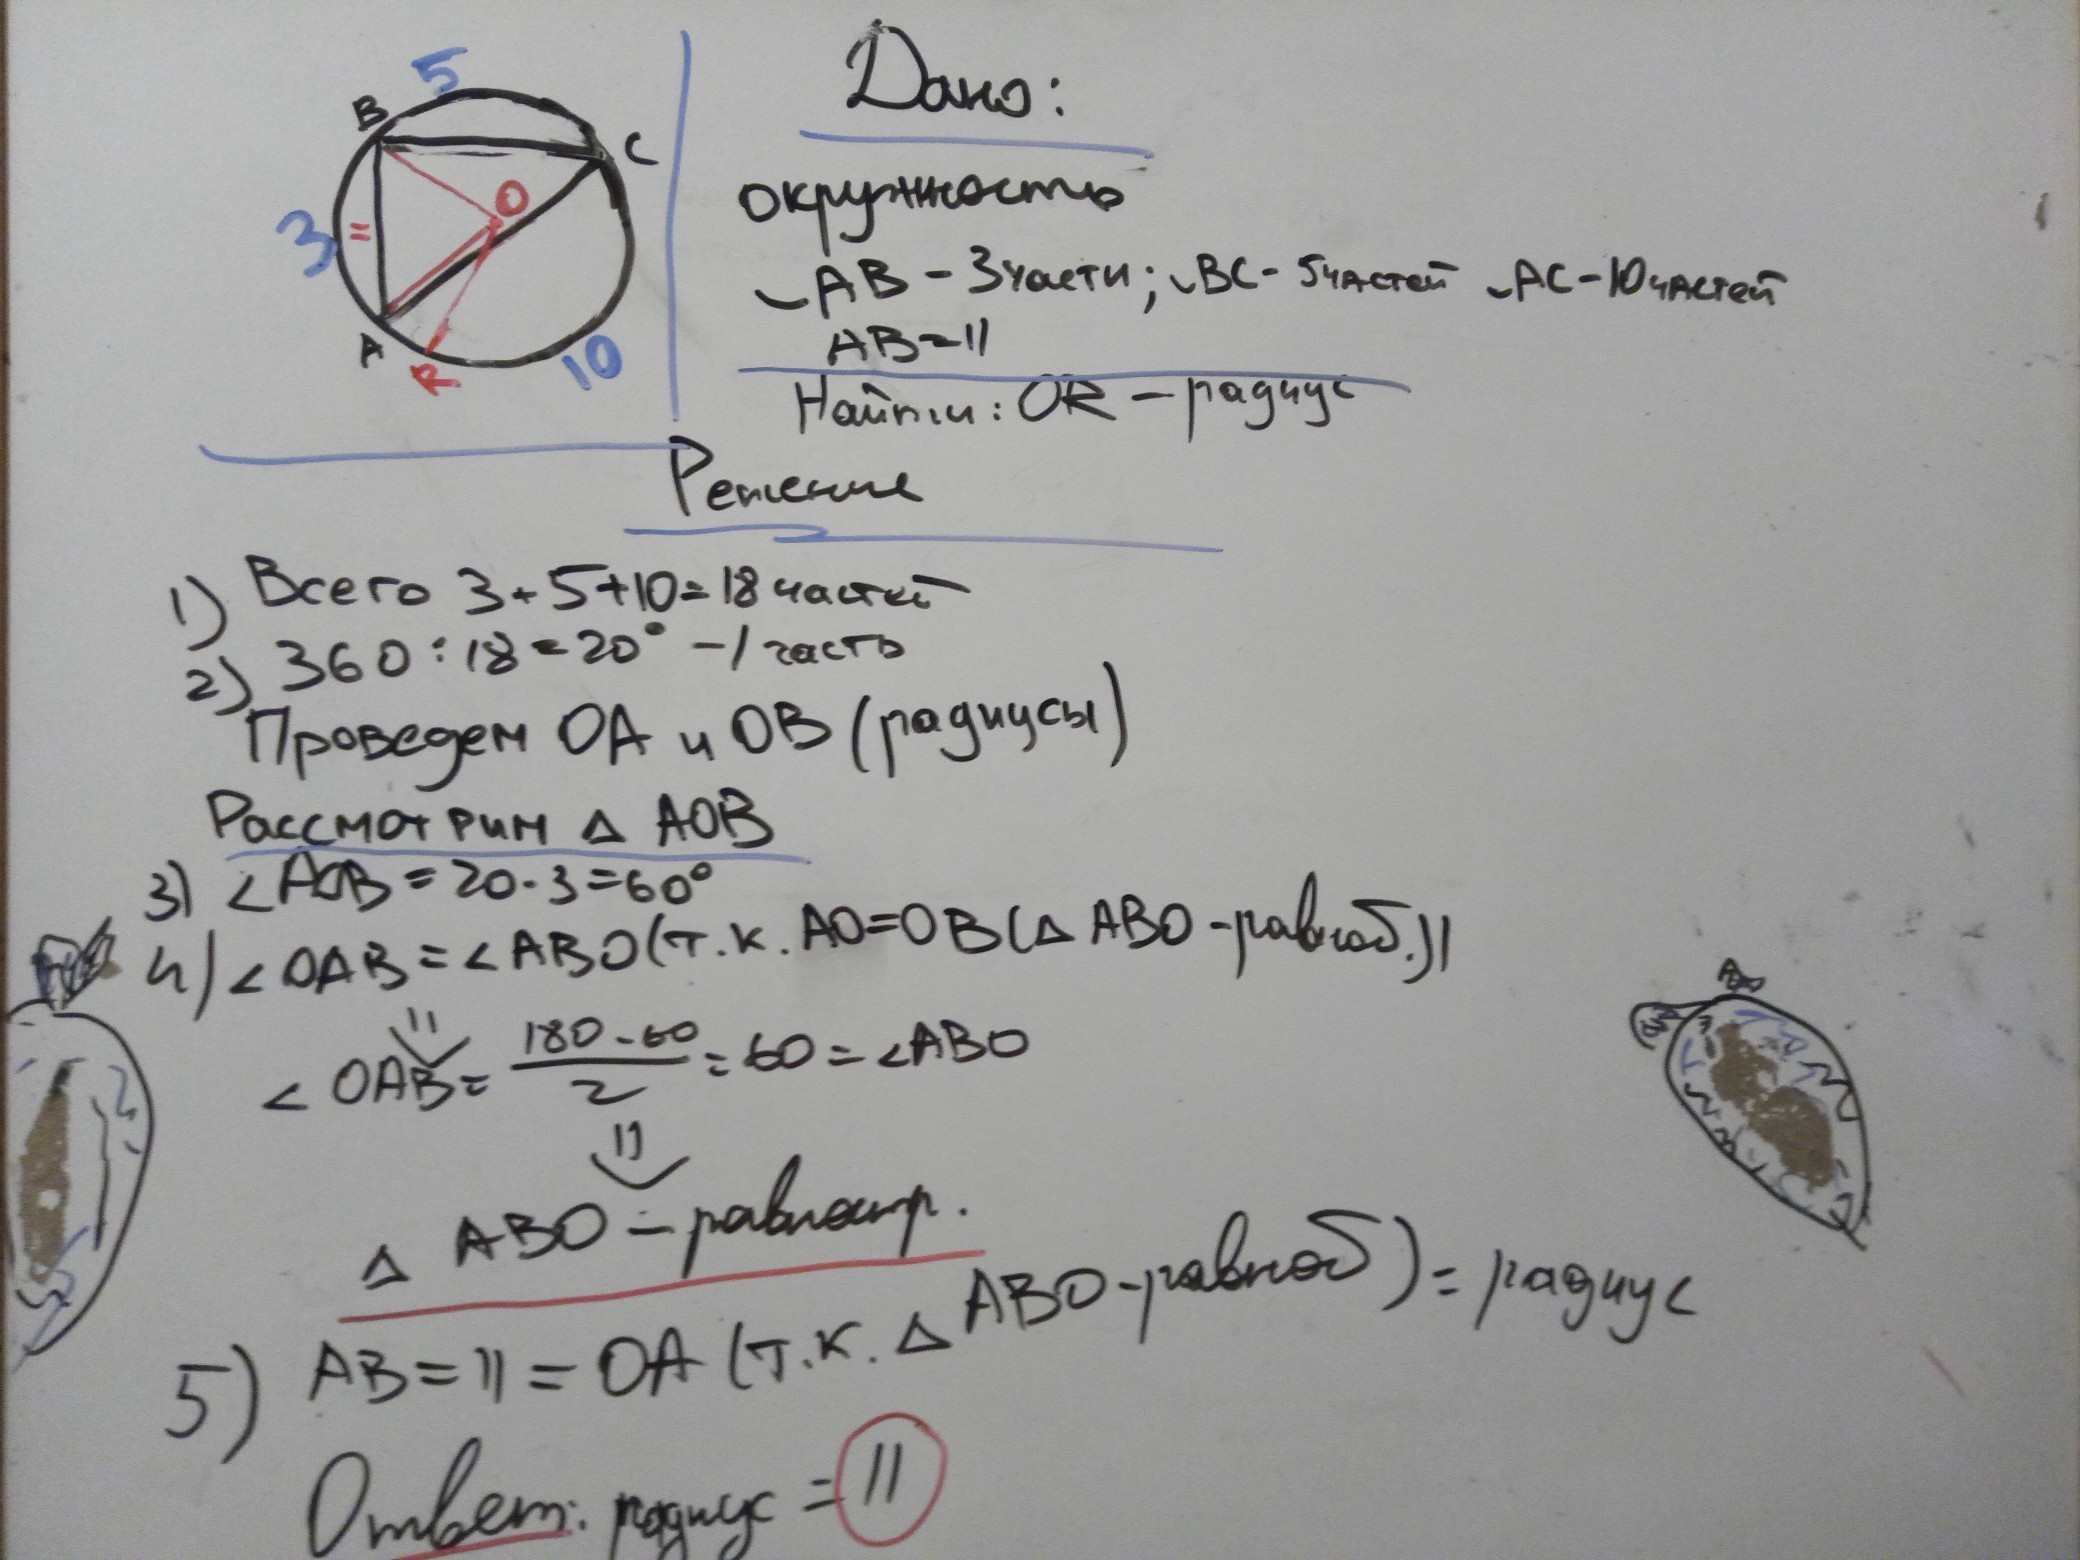 5
B
C
O
3
=
A
R
10
Дано:
окружность
◡AB - 3 части; ◡BC - 5 частей ◡AC - 10 частей
AB = 11
Найти: OR - радиус
Решение
1) Всего 3 + 5 + 10 = 18 частей
2) 360 : 18 = 20° - 1 часть
Проведем OA и OB (радиусы)
Рассмотрим △ AOB
3) ∠AOB = 20 · 3 = 60°
4) ∠OAB = ∠ABO (т.к. AO = OB (△ ABO - равноб.))
⇓
∠OAB = (180 - 60)/2 = 60 = ∠ABO
⇓
△ ABO - равностр.
5) AB = 11 = OA (т.к. △ ABO - равноб) = радиус
Ответ: радиус = 11